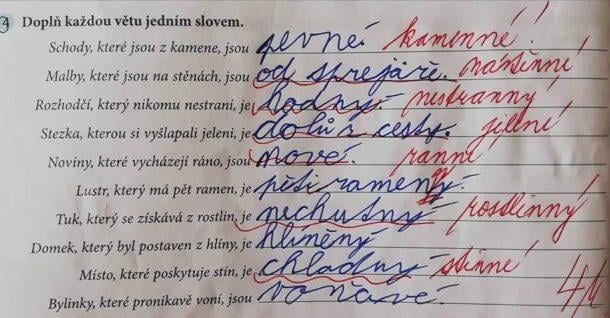 4 Doplň každou větu jedním slovem.
Schody, které jsou z kamene, jsou pevné. kamenné!
Malby, které jsou na stěnách, jsou od sprejáře. nástěnní
Rozhodčí, který nikomu nestraní, je hodný. nestranný!
Stezka, kterou si vyšlapali jeleni, je dolů z cesty. jelení
Noviny, které vycházejí ráno, jsou nové. ranní
Lustr, který má pět ramen, je pěti ramený.
Tuk, který se získává z rostlin, je nechutný rostlinný!
Domek, který byl postaven z hlíny, je hliněný
Místo, které poskytuje stín, je chladný stinné!
Bylinky, které pronikavě voní, jsou voňavé.